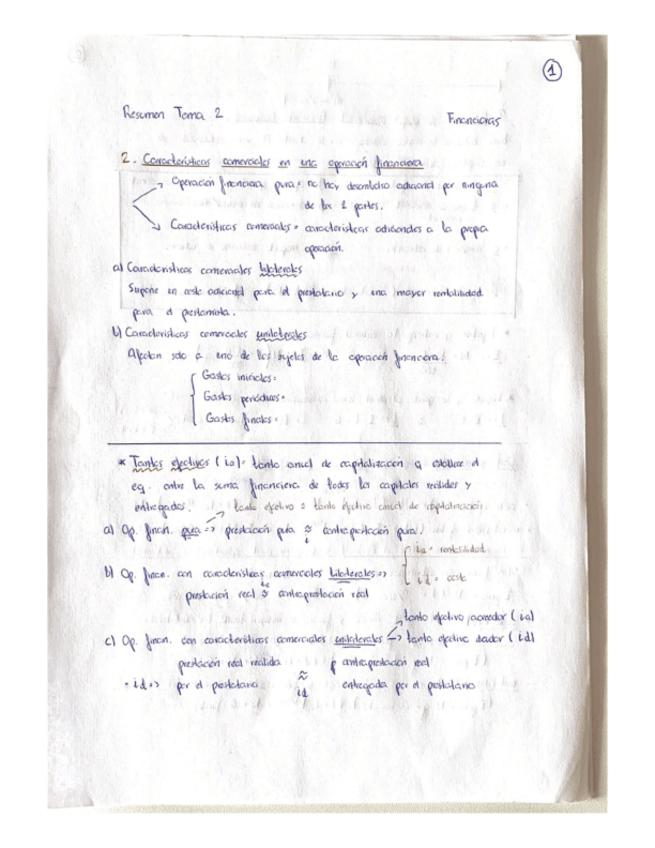 1
Resumen Tema 2 Financieras
2. Características comerciales en una operación financiera
→ Operación financiera pura = no hay desembolso adicional por ninguna
de las 2 partes.
→ Características comerciales = características adicionales a la propia
operación.
a) Características comerciales bilaterales
Supone un coste adicional para el prestatario y una mayor rentabilidad
para el prestamista.
b) Características comerciales unilaterales
Afectan solo a uno de los sujetos de la operación financiera:
Gastos iniciales =
Gastos periódicos =
Gastos finales =
* Tantos efectivos (ia)= tanto anual de capitalización q establece el
eq. entre la suma financiera de todos los capitales recibidos y
entregados. → tanto efectivo = tanto efectivo anual de capitalización.
a) Op. finan. pura => prestación pura ≈ contraprestación pura.
i
b) Op. finan. con características comerciales bilaterales =>
ia = rentabilidad
id = coste
prestación real ≈ contraprestación real
c) Op. finan. con características comerciales unilaterales
→ tanto efectivo acreedor (ia)
→ tanto efectivo deudor (id)
prestación real recibida contraprestación real
• id => por el prestatario ≈ entregada por el prestatario
id